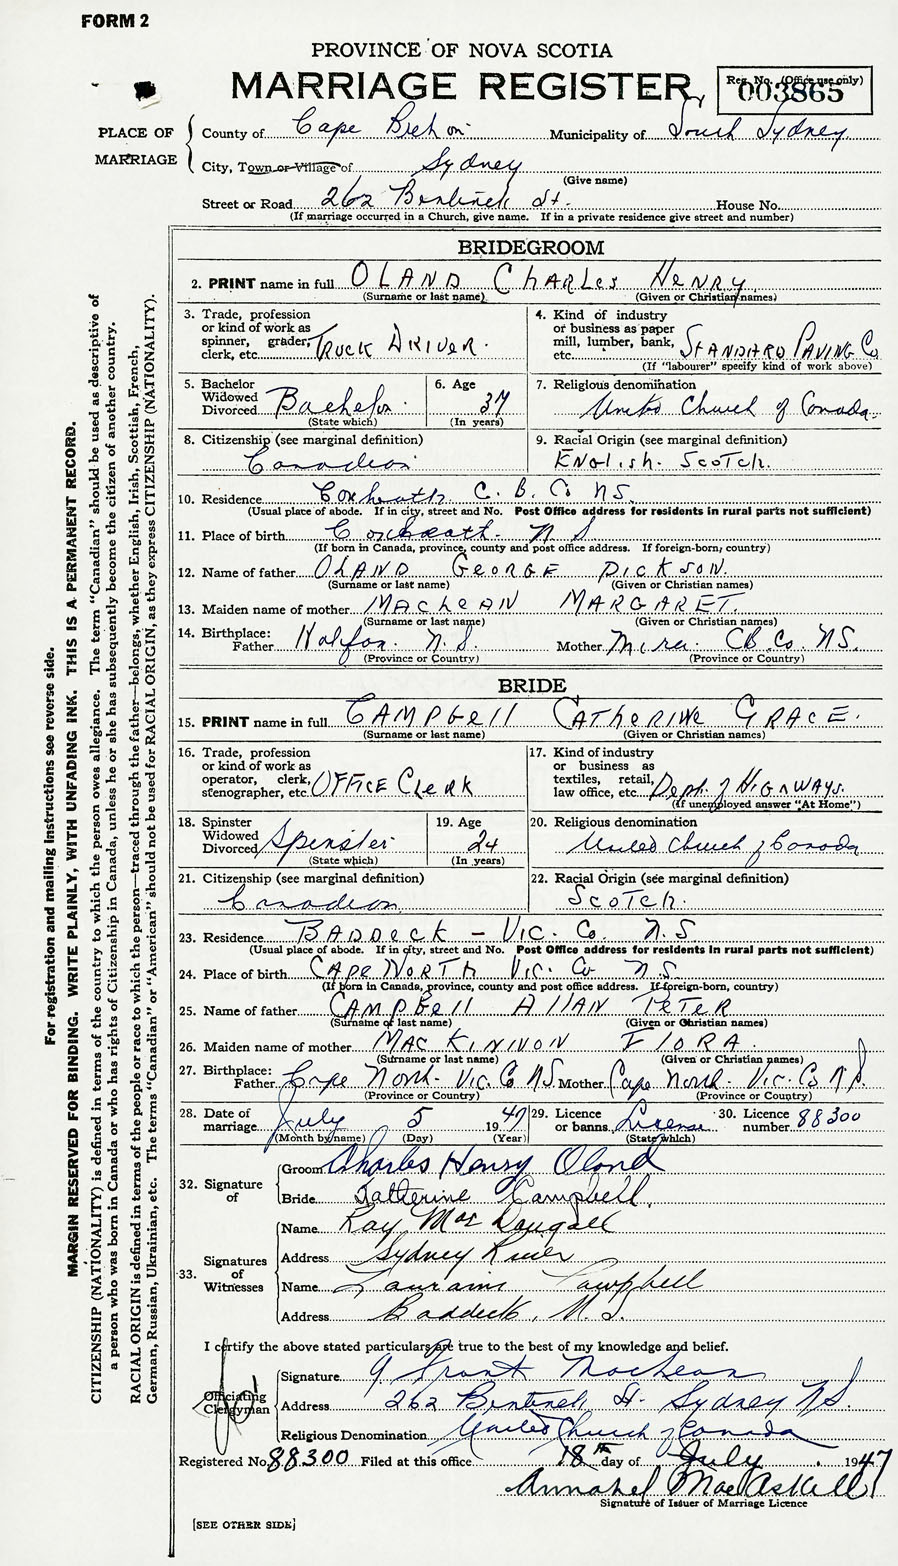 FORM 2
PROVINCE OF NOVA SCOTIA
MARRIAGE REGISTER
Reg. No. (Office use only)
003865
PLACE OF MARRIAGE
County of Cape Breton Municipality of South Sydney
City, Town or Village of Sydney
(Give name)
Street or Road 262 Bentinck St. House No.
(If marriage occurred in a Church, give name. If in a private residence give street and number)
BRIDEGROOM
2. PRINT name in full OLAND CHARLES HENRY
(Surname or last name) (Given or Christian names)
3. Trade, profession or kind of work as spinner, grader, clerk, etc. TRUCK DRIVER.
4. Kind of industry or business as paper mill, lumber, bank, etc. STANDARD PAVING Co
(If "labourer" specify kind of work above)
5. Bachelor Widowed Divorced Bachelor
(State which)
6. Age 37
(In years)
7. Religious denomination
United Church of Canada.
8. Citizenship (see marginal definition)
Canadian
9. Racial Origin (see marginal definition)
ENGlisH. SCOTCH.
10. Residence Coxheath C. B. Co NS.
(Usual place of abode. If in city, street and No. Post Office address for residents in rural parts not sufficient)
11. Place of birth Coxheath. N S
(If born in Canada, province, county and post office address. If foreign-born, country)
12. Name of father OLAND GEORGE DICKSON.
(Surname or last name) (Given or Christian names)
13. Maiden name of mother MACLEAN MARGARET.
(Surname or last name) (Given or Christian names)
14. Birthplace: Father Halifax. N. S. Mother Mira. CB. Co. NS.
(Province or Country) (Province or Country)
BRIDE
15. PRINT name in full CAMPBELL CATHERINE GRACE.
(Surname or last name) (Given or Christian names)
16. Trade, profession or kind of work as operator, clerk, stenographer, etc. OFFICE CLERK
17. Kind of industry or business as textiles, retail, law office, etc. Dept. of HIGHWAYS.
(If unemployed answer "At Home")
18. Spinster Widowed Divorced Spinster
(State which)
19. Age 24
(In years)
20. Religious denomination
United Church of Canada
21. Citizenship (see marginal definition)
Canadian.
22. Racial Origin (see marginal definition)
SCOTCH.
23. Residence BADDECK - VIC. Co. N.S
(Usual place of abode. If in city, street and No. Post Office address for residents in rural parts not sufficient)
24. Place of birth CAPE NORTH VIC. Co N.S.
(If born in Canada, province, county and post office address. If foreign-born, country)
25. Name of father CAMPBELL ALLAN PETER
(Surname of last name) (Given or Christian names)
26. Maiden name of mother MAC KINNON FLORA.
(Surname or last name) (Given or Christian names)
27. Birthplace: Father Cape North. Vic. Co NS. Mother Cape North. Vic. Co N.S.
(Province or Country) (Province or Country)
28. Date of marriage July 5 1947
(Month by name) (Day) (Year)
29. Licence or banns License
(State which)
30. Licence number 88300
32. Signature of
Groom Charles Henry Oland
Bride Catherine Campbell.
33. Signatures of Witnesses
Name Ray MacDougall
Address Sydney River
Name Campbell
Address Baddeck, N.S.
I certify the above stated particulars are true to the best of my knowledge and belief.
Officiating Clergyman
Signature G. Grant MacLean
Address 262 Bentinck St. Sydney N.S.
Religious Denomination United Church of Canada
Registered No. 88300 Filed at this office 18th day of July 1947
Annabel MacAskill
Signature of Issuer of Marriage Licence
[SEE OTHER SIDE]
For registration and mailing instructions see reverse side.
MARGIN RESERVED FOR BINDING. WRITE PLAINLY, WITH UNFADING INK. THIS IS A PERMANENT RECORD.
CITIZENSHIP (NATIONALITY) is defined in terms of the country to which the person owes allegiance. The term "Canadian" should be used as descriptive of
a person who was born in Canada or who has rights of Citizenship in Canada, unless he or she has subsequently become the citizen of another country.
RACIAL ORIGIN is defined in terms of the people or race to which the person—traced through the father—belongs, whether English, Irish, Scottish, French,
German, Russian, Ukrainian, etc. The terms "Canadian" or "American" should not be used for RACIAL ORIGIN, as they express CITIZENSHIP (NATIONALITY).